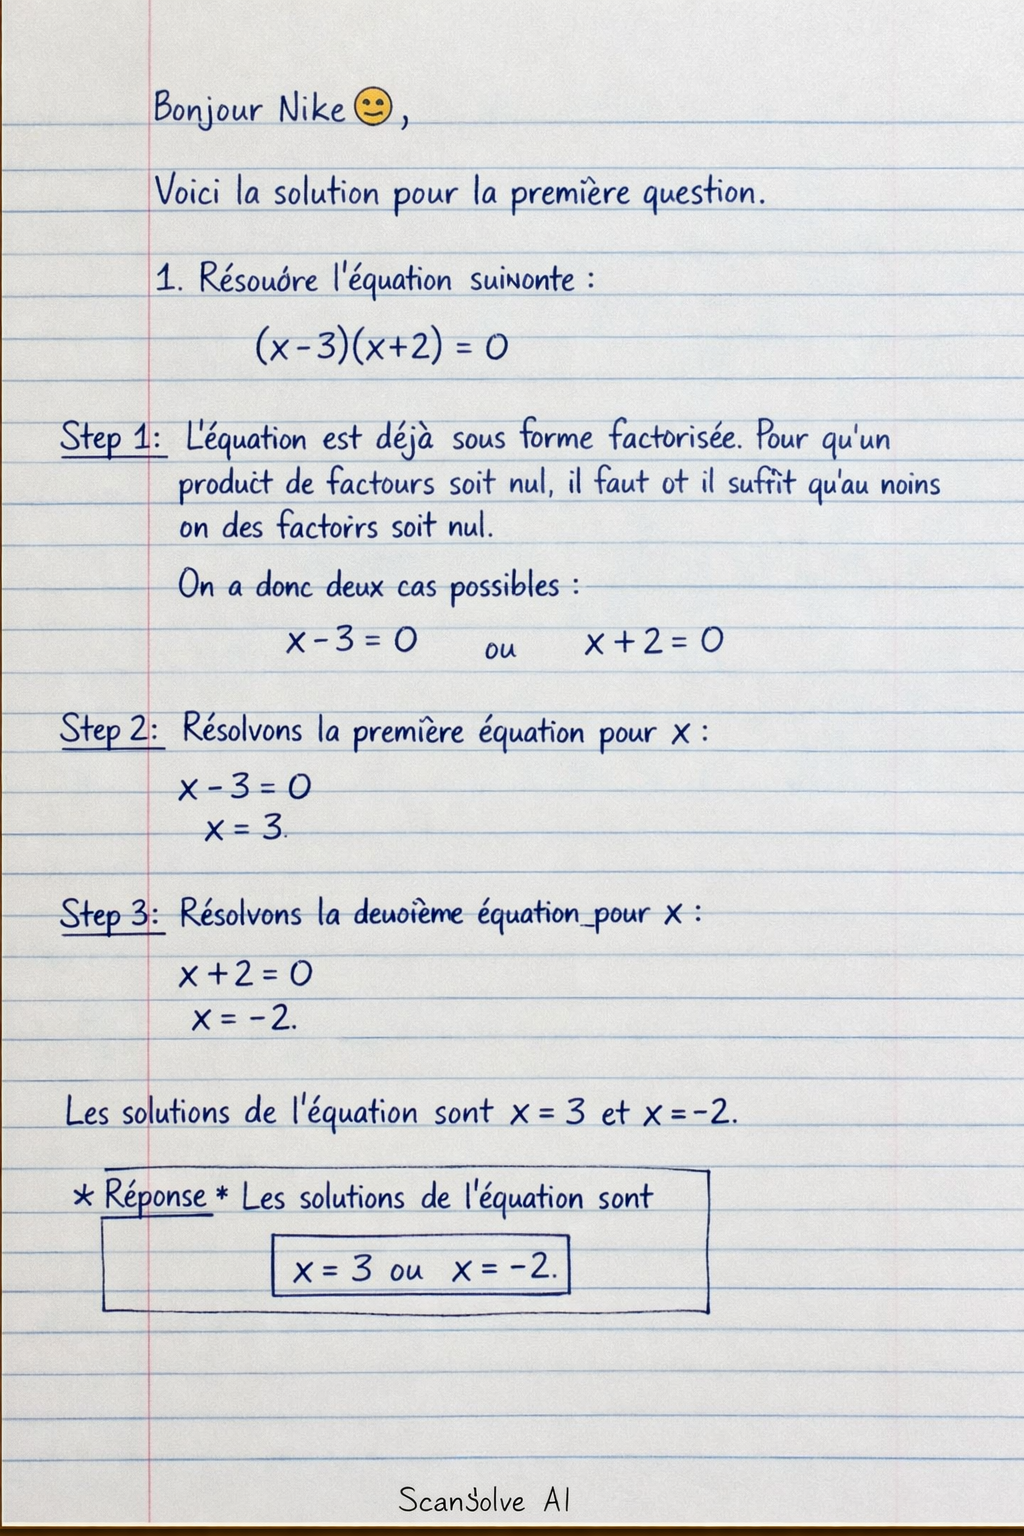 Bonjour Nike 😐,
Voici la solution pour la première question.
1. Résouóre l'équation suiNonte :
(x-3)(x+2) = 0
Step 1: L'équation est déjà sous forme factorisée. Pour qu'un
product de factours soit nul, il faut ot il suffît qu'au noins
on des factoirs soit nul.
On a donc deux cas possibles :
x-3 = 0 ou x+2 = 0
Step 2: Résolvons la première équation pour x :
x-3 = 0
x = 3.
Step 3: Résolvons la deuoième équation_pour x :
x+2 = 0
x = -2.
Les solutions de l'équation sont x = 3 et x = -2.
* Réponse * Les solutions de l'équation sont
x = 3 ou x = -2.
ScanSolve AI